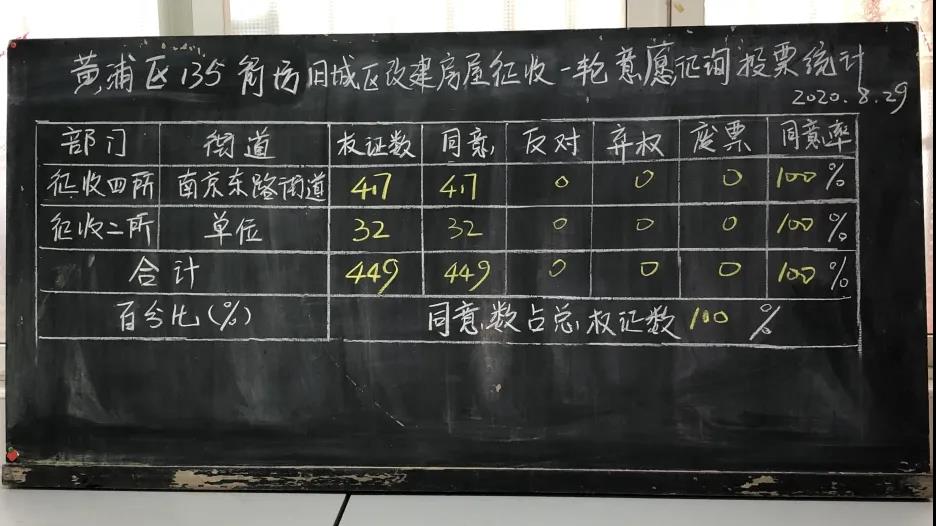 黄浦区135街坊旧城区改建房屋征收一轮意愿征询投票统计
2020.8.29
部门 街道 权证数 同意 反对 弃权 废票 同意率
征收四所 南京东路街道 417 417 0 0 0 100%
征收二所 单位 32 32 0 0 0 100%
合计 449 449 0 0 0 100%
百分比(%) 同意数占总权证数100%